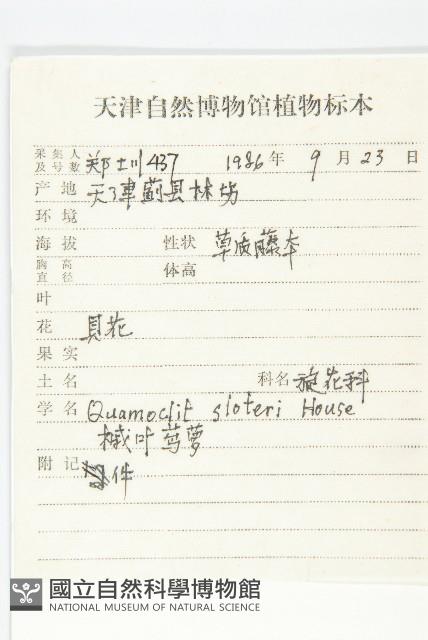 天津自然博物馆植物标本
采集人及号数 郑士川 437 1986年 9月23日
产地 天津蓟县林场
环境
海拔 性状 草质藤本
胸高直径 体高
叶
花 具花
果实
土名 科名 旋花科
学名 Quamoclit sloteri House
槭叶茑萝
附记 件
國立自然科學博物館
NATIONAL MUSEUM OF NATURAL SCIENCE